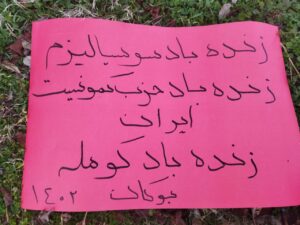 زنده باد سوسیالیزم
زنده باد حزب کمونیست
ایران
زنده باد کومله
بوکان ۱۴۰۲